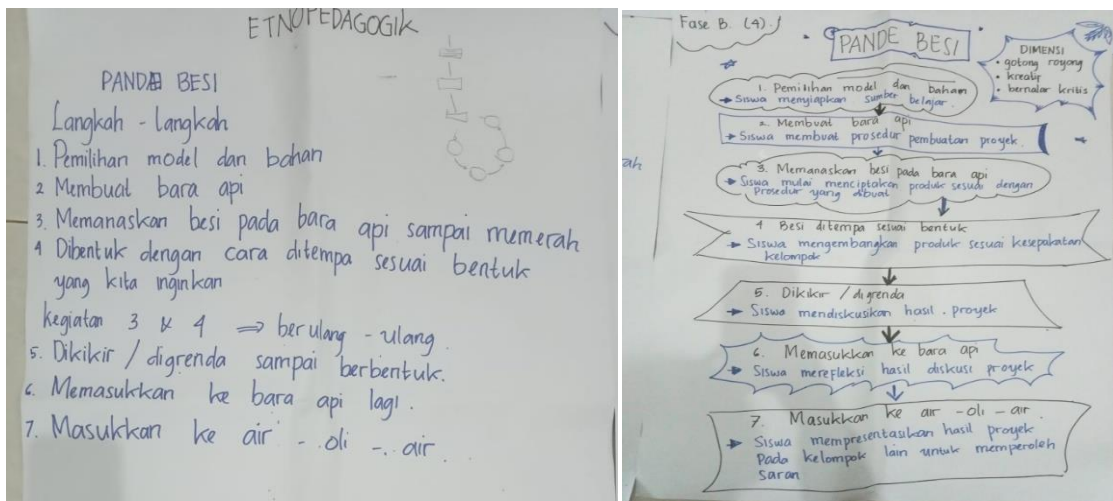 ETNOPEDAGOGIK
PANDE BESI
Langkah - langkah
1. Pemilihan model dan bahan
2 Membuat bara api
3. Memanaskan besi pada bara api sampai memerah
4 Dibentuk dengan cara ditempa sesuai bentuk
yang kita inginkan
kegiatan 3 & 4 ⇒ berulang - ulang
5. Dikikir / digrenda sampai berbentuk.
6. Memasukkan ke bara api lagi.
7. Masukkan ke air - oli - air
Fase B. (4).
PANDE BESI
DIMENSI
• gotong royong
• kreatif
• bernalar kritis
1. Pemilihan model dan bahan
→ Siswa menyiapkan sumber belajar.
2. Membuat bara api
→ Siswa membuat prosedur pembuatan proyek.
3. Memanaskan besi pada bara api
→ Siswa mulai menciptakan produk sesuai dengan
Prosedur yang dibuat
4 Besi ditempa sesuai bentuk
→ Siswa mengembangkan produk sesuai kesepakatan
kelompok
5. Dikikir / digrenda
→ Siswa mendiskusikan hasil proyek
6. Memasukkan ke bara api
→ Siswa merefleksi hasil diskusi proyek
7. Masukkan ke air - oli - air.
→ Siswa mempresentasikan hasil proyek
Pada kelompok lain untuk memperoleh
saran